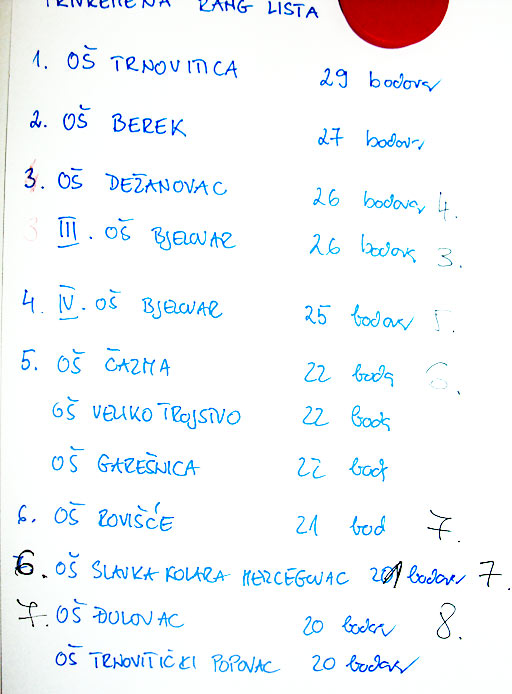 PRIVREMENA RANG LISTA
1. OŠ TRNOVITICA 29 bodova
2. OŠ BEREK 27 bodova
3. OŠ DEŽANOVAC 26 bodova 4.
3 III. OŠ BJELOVAR 26 bodova 3.
4. IV. OŠ BJELOVAR 25 bodova 5.
5. OŠ ČAZMA 22 boda 6.
OŠ VELIKO TROJSTVO 22 boda
OŠ GAREŠNICA 22 boda
6. OŠ ROVIŠĆE 21 bod 7.
6. OŠ SLAVKA KOLARA HERCEGOVAC 21 bodova 7.
7. OŠ ĐULOVAC 20 bodova 8.
OŠ TRNOVITIČKI POPOVAC 20 bodova